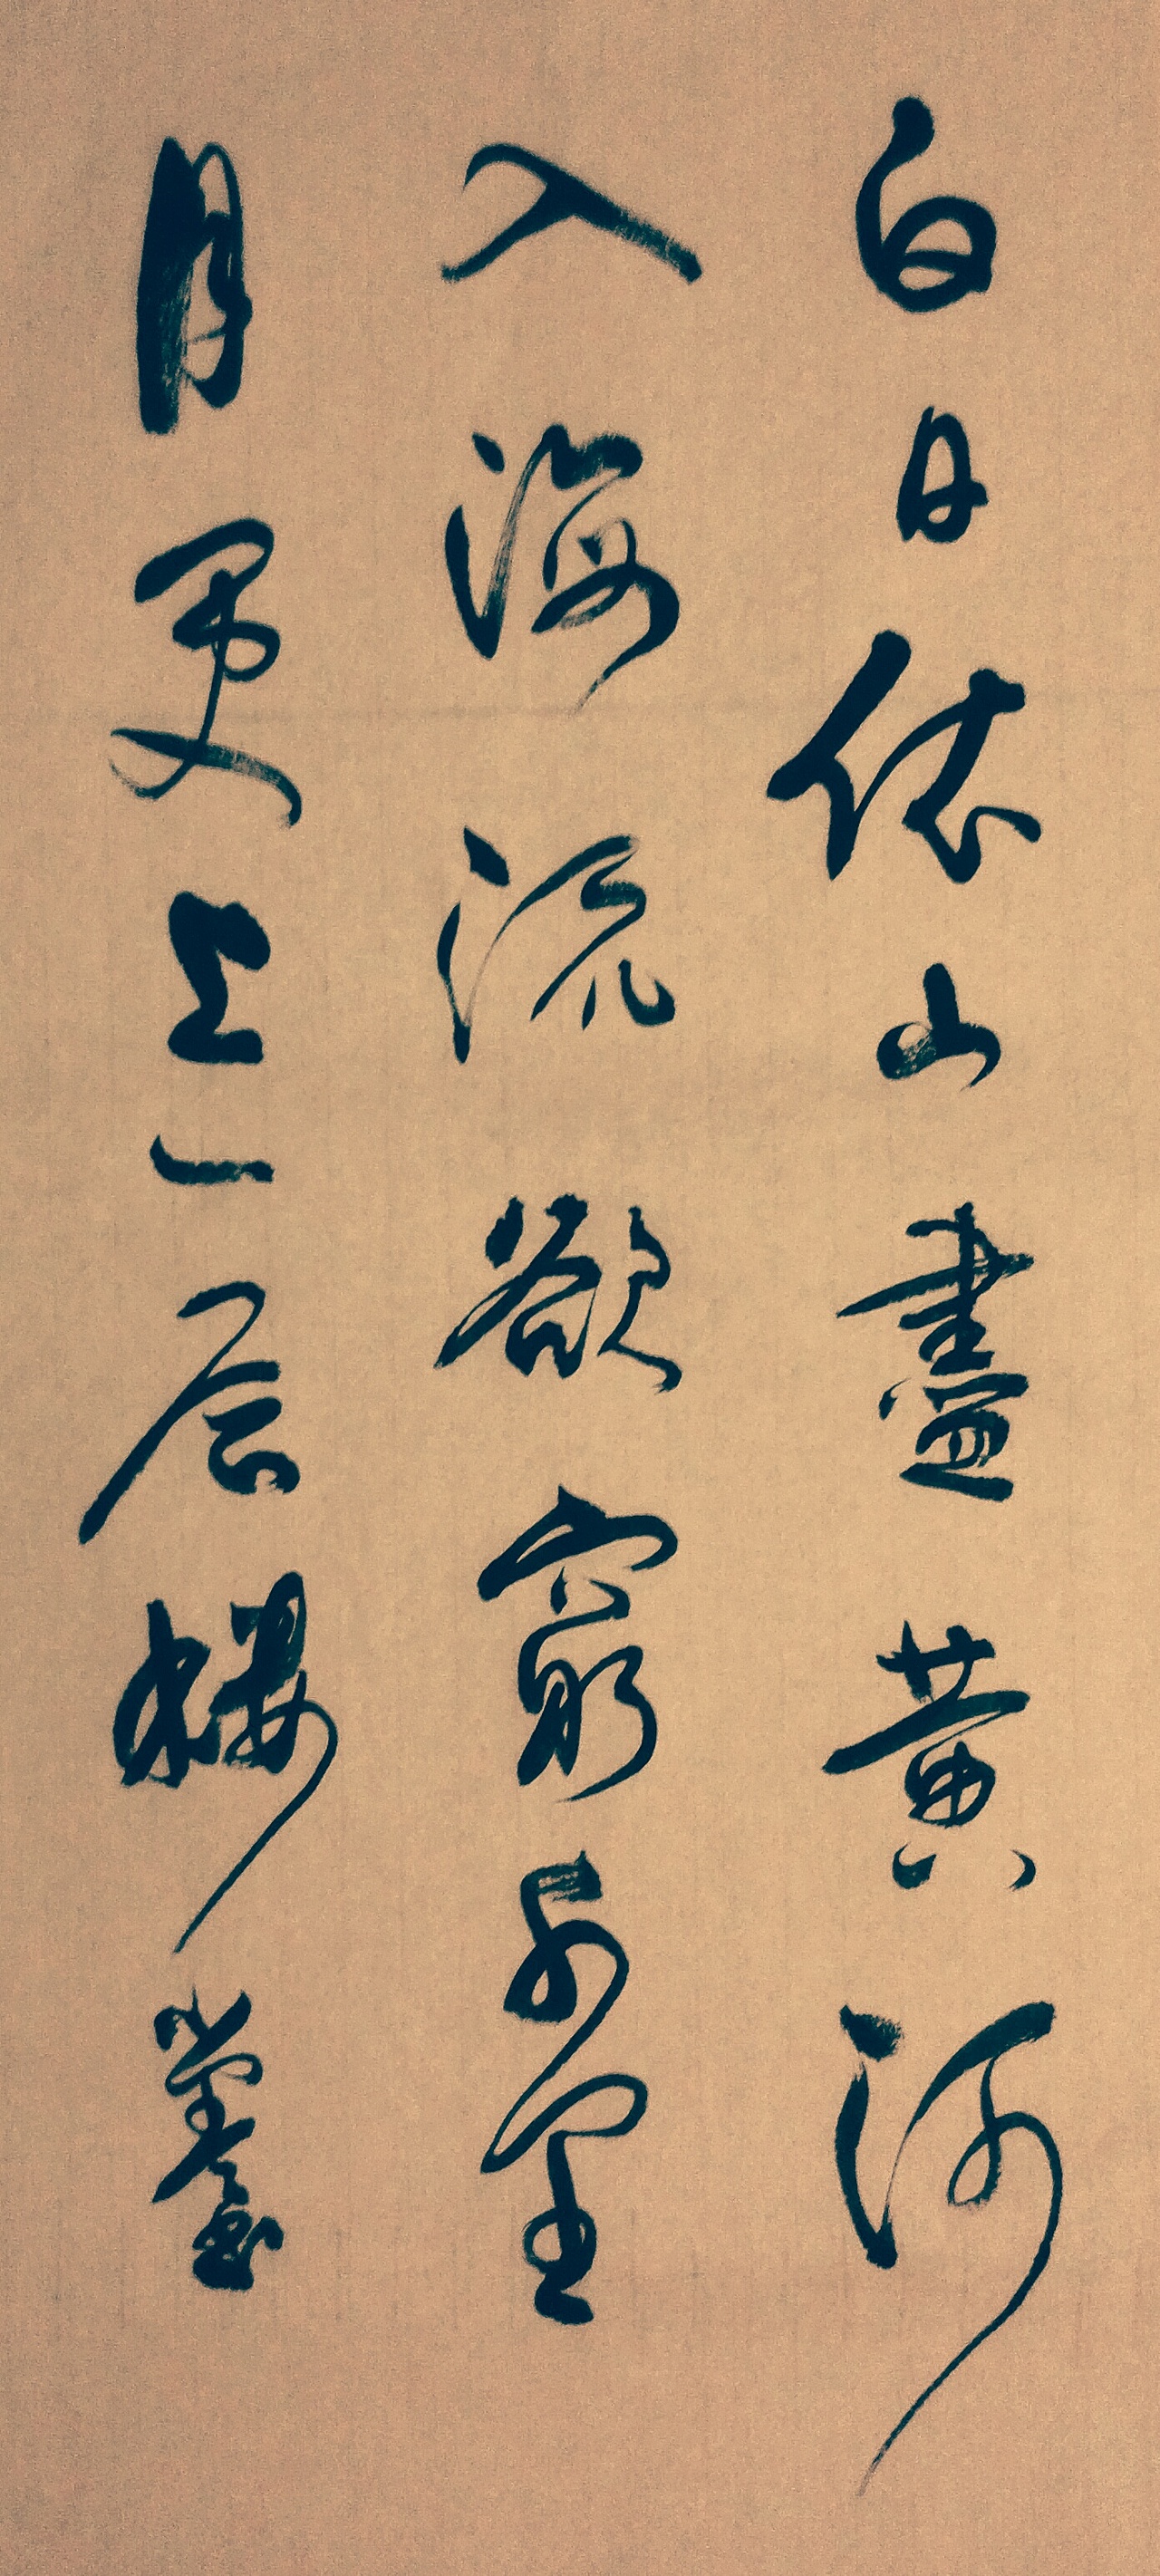 白日依山盡黄河
入海流欲窮千里
目更上一层樓